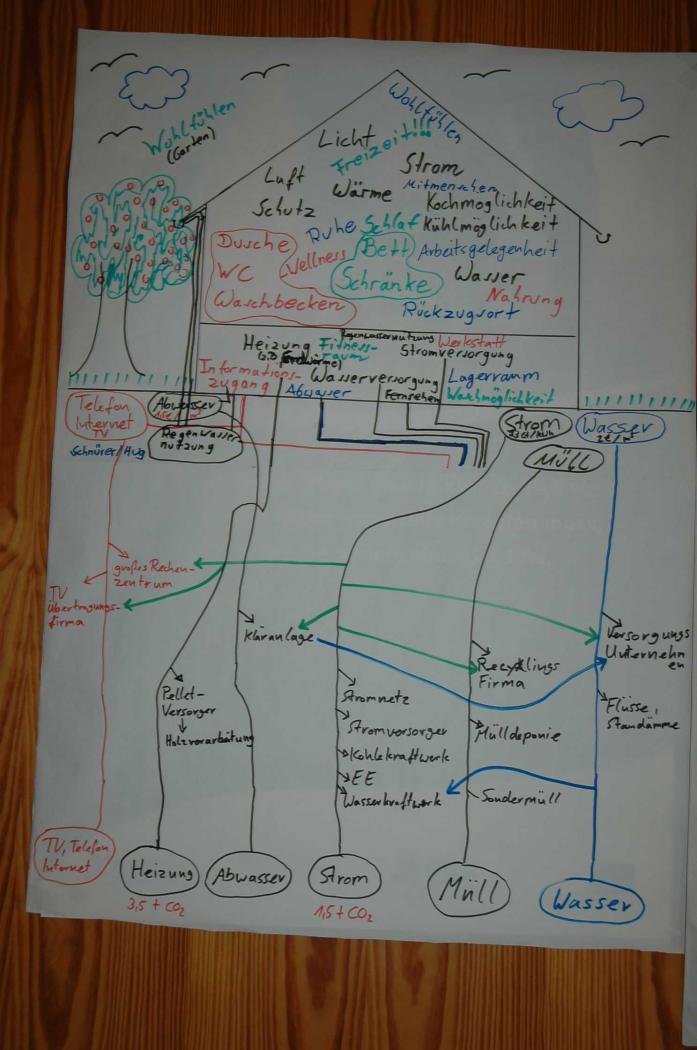 Wohlfühlen
(Garten)
Wohlfühlen
Licht
Freizeit!!!
Strom
Luft
Wärme
Mitmenschen
Kochmöglichkeit
Schutz
Ruhe
Schlaf
Kühlmöglichkeit
Dusche
Wellness
Bett
Arbeitsgelegenheit
WC
Schränke
Wasser
Waschbecken
Nahrung
Rückzugsort
Regenwassernutzung
Heizung
Fitness-
raum
Werkstatt
Stromversorgung
Informations-
zugang
Wasserversorgung
Lagerraum
Abwasser
Fernsehen
Waschmöglichkeit
Telefon
Internet
TV
Abwasser
Regenwasser
nutzung
Schnürer/Hug
Strom
Wasser
2€/m³
Müll
großes Rechen-
zentrum
TV
Übertragungs-
firma
Kläranlage
Versorgungs
Unternehm
en
Recyklings
Firma
Pellet-
Versorger
Holzvorarbeitung
Stromnetz
Stromversorger
Kohlekraftwerk
EE
Wasserkraftwerk
Mülldeponie
Sondermüll
Flüsse,
Staudämme
TV, Telefon
Internet
Heizung
3,5 t CO₂
Abwasser
Strom
1,5 t CO₂
Müll
Wasser